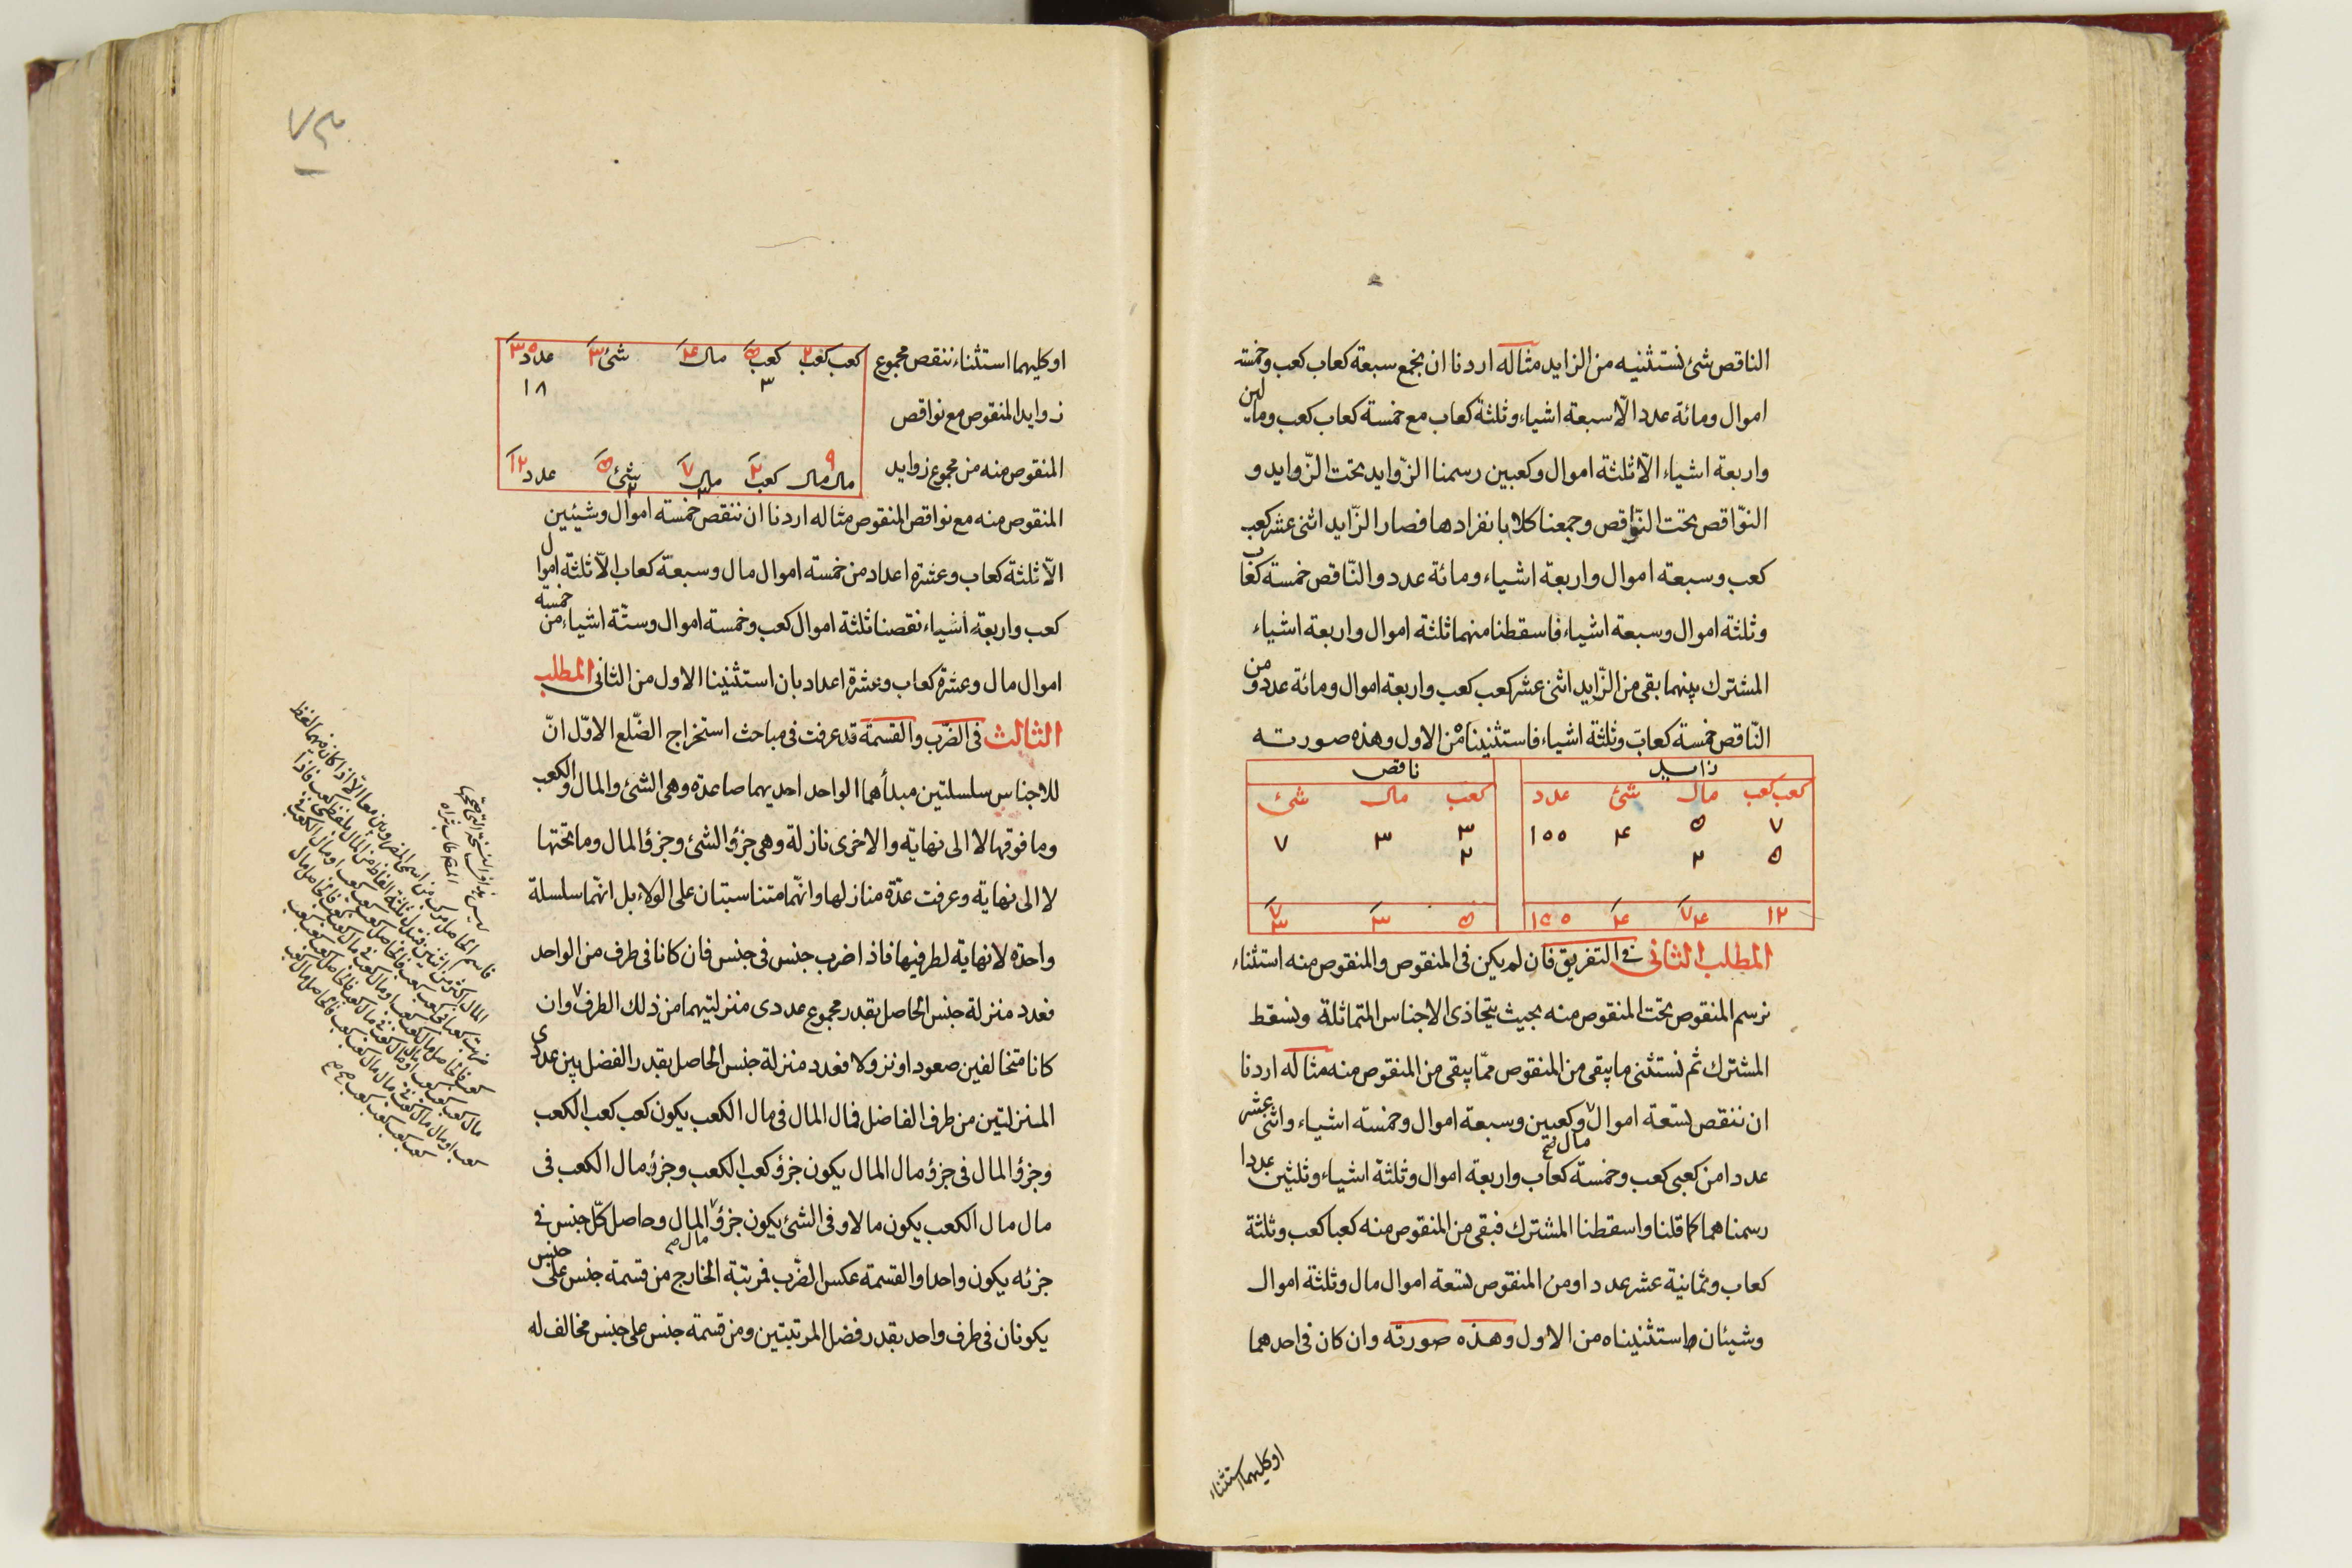 الناقص شئ نستثنيه من الزايد مثاله اردنا ان نجمع سبعة كعاب كعب وخمسة
اموال ومائة عدد الّا سبعة اشياء وثلثة كعاب مع خمسة كعاب كعب ومالين
واربعة اشياء الّا ثلثة اموال وكعبين رسمنا الزّوايد تحت الزّوايد و
النّواقص تحت النّواقص وجمعنا كلا بانفرادها فصار الزّايد اثنى عشر كعب
كعب وسبعة اموال واربعة اشياء ومائة عدد والنّاقص خمسة كعاب
وثلثة اموال وسبعة اشياء فاسقطنا منهما ثلثة اموال واربعة اشياء
المشترك بينهما بقى من الزّايد اثنى عشر كعب كعب واربعة اموال ومائة عدد ومن
النّاقص خمسة كعاب وثلثة اشياء فاستثنيناه من الاول وهذه صورته
زايد ناقص
كعب كعب مال شئ عدد كعب مال شئ
٧ ٥ ۴ ١٠٠ ٣ ٣ ٧
٥ ٢ ٢
١٢ ٧ ۴ ۴ ١٥٥ ٥ ٣ ٧ ٣
المطلب الثانى فى التفريق فان لم يكن فى المنقوص والمنقوص منه استثناء
نرسم المنقوص تحت المنقوص منه بحيث يتحاذى الاجناس المتماثلة ونسقط
المشترك ثم نستثنى ما يبقى من المنقوص ممّا يبقى من المنقوص منه مثاله اردنا
ان ننقص تسعة اموال مال صح وكعبين وسبعة اموال وخمسة اشياء واثنى عشر
عددا من كعبى كعب وخمسة كعاب واربعة اموال وثلثة اشياء وثلثين عددا
رسمناهما كما قلنا واسقطنا المشترك فبقى من المنقوص منه كعبا كعب وثلثة
كعاب وثمانية عشر عددا ومن المنقوص تسعة اموال مال وثلثة اموال
وشيئان فاستثنيناه من الاول وهذه صورته وان كان فى احدهما
او كليهما استثناء
او كليهما استثناء ننقص مجموع
زوايد المنقوص مع نواقص
المنقوص منه من مجموع زوايد
كعب كعب ٢ كعب ٥ مال ۴ شئ ٣ عدد ٣٥
٣ ١٨
٩ مال مال كعب ٢ مال ٧ شئ ٥ عدد ١٢
٣ ٢
المنقوص منه مع نواقص المنقوص مثاله اردنا ان ننقص خمسة اموال وشيئين
الّا ثلثة كعاب وعشرة اعداد من خمسة اموال مال وسبعة كعاب الّا ثلثة اموال
كعب واربعة اشياء نقصنا ثلثة اموال كعب وخمسة اموال وستّة اشياء من خمسة
اموال مال وعشرة كعاب وعشرة اعداد بان استثنينا الاول من الثانى المطلب
الثالث فى الضّرب والقسمة قد عرفت فى مباحث استخراج الضّلع الاوّل انّ
للاجناس سلسلتين مبدأهما الواحد احديهما صاعدة وهى الشئ والمال والكعب
وما فوقها لا الى نهاية والاخرى نازلة وهى جزؤ الشئ وجزؤ المال وما تحتها
لا الى نهاية وعرفت عدّة منازلها وانّهما متناسبتان على الولاء بل انّهما سلسلة
واحدة لا نهاية لطرفيها فاذا ضرب جنس فى جنس فان كانا فى طرف من الواحد
فعدد منزلة جنس الحاصل بقدر مجموع عددى منزلتيهما من ذلك الطرف وان
كانا متخالفين صعودا ونزولا فعدد منزلة جنس الحاصل بقدر الفضل بين عددى
المنزلتين من طرف الفاضل فمال المال فى مال الكعب يكون كعب كعب الكعب
وجزؤ المال فى جزؤ مال المال يكون جزؤ كعب الكعب وجزؤ مال الكعب فى
مال مال الكعب يكون مالا وفى الشئ يكون جزؤ مال صح المال وحاصل كلّ جنس فى
جزئه يكون واحدا والقسمة عكس الضّرب فمرتبة الخارج من قسمة جنس على جنس
يكونان فى طرف واحد بقدر فضل المرتبتين ومن قسمة جنس على جنس مخالف له